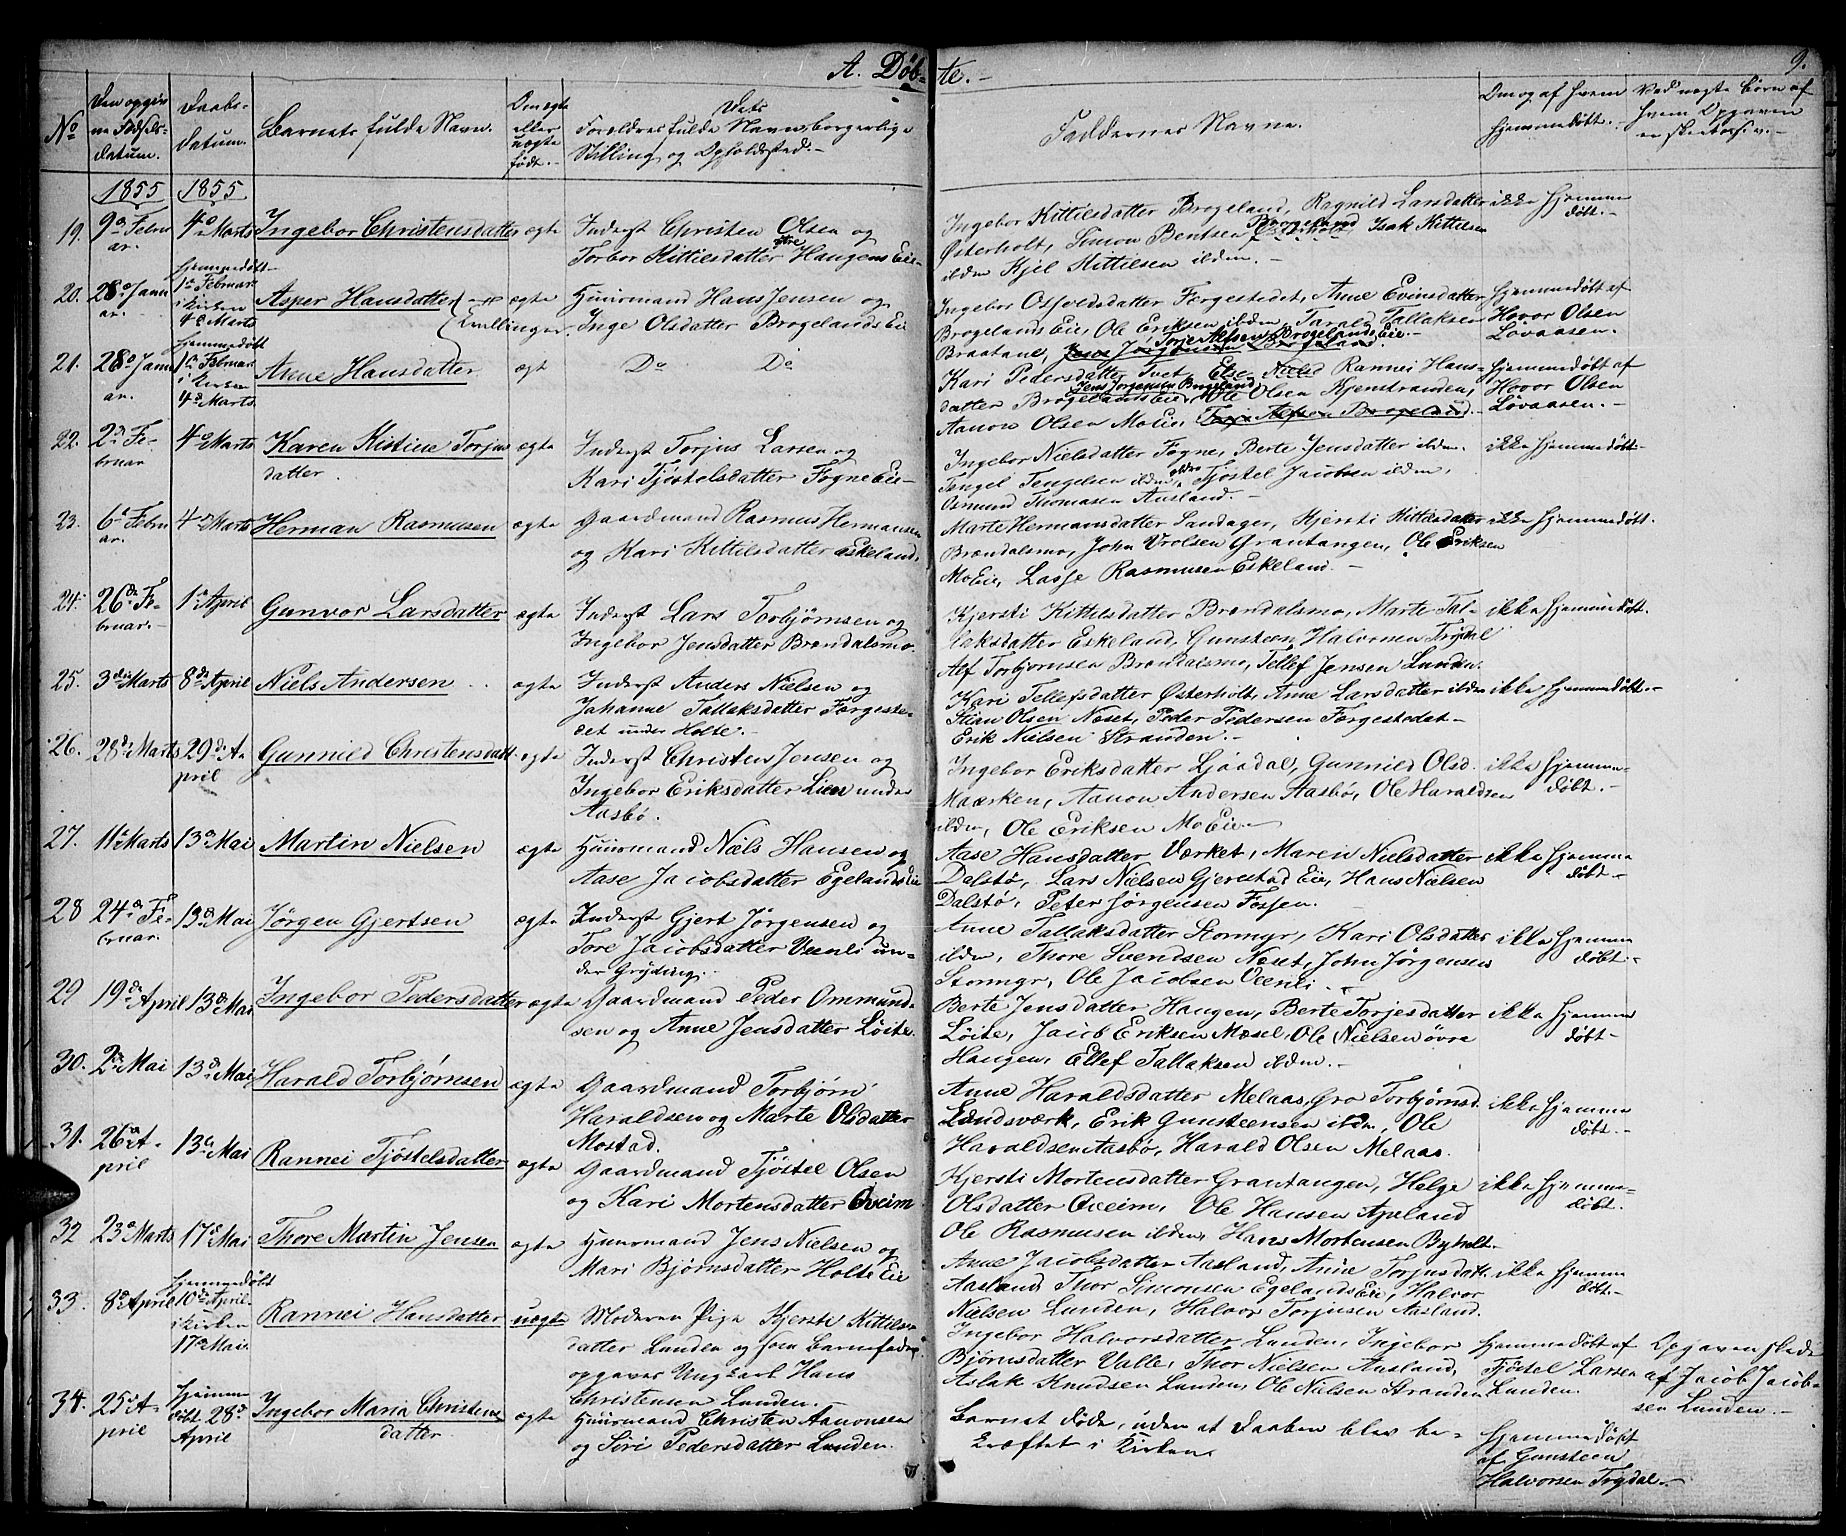 A. Døbte.
9.
No
Den opgivne Fødselsdatum.
Daabsdatum.
Barnets fulde Navn.
Om ægte eller uægte født.
Dets Forældres fulde Navn, borgerlige Stilling og Opholdssted.
Faddernes Navne.
Om og af hvem hjemmedøbt.
Ved uægte Børn af hvem Opgaven er skeet
1855
1855
19. 9de Februar. 4de Marts Ingebor Christensdatter ægte
Inderst Christen Olsen og
Torbor Kittilsdatter Haugens Eie
Ingebor Kittilsdatter Brogeland, Ragnild Larsdatter
Østerholt, Simon Bentsen Brogeland, Isak Kittilsen
ildem Kjel Kittilsen ildem.
ikke hjemmedøbt.
20. 28de Januar. hjemmedøbt 1ste Februar i Kirken 4de Marts Asper Hansdatter Tvillinger. ægte
Huusmand Hans Jensen og
Inge Olsdatter Brogelands Eie
Ingebor Osfoldsdatter Færgestedet, Anne Evinsdatter
Brogelands Eie, Ole Eriksen ildem, Tarald Tallaksen
Braatane, Terje Alfsen Brogelands Eie
hjemmedøbt af
Hovor Olsen
Løvaasen.
21. 28de Januar. hjemmedøbt 1ste Februar i Kirken 4de Marts Anne Hansdatter ægt
Do Do
Kari Pedersdatter Tvet, Rannei Hansdatter
Brogelands Eie, Jens Jørgensen Brogeland, Ole Olsen Kjenstranden,
Aanon Olsen Mo Eie, Terje Alfsen Brogeland.
hjemmedøbt af
Hovor Olsen
Løvaasen.
22. 2den Februar 4de Marts Karen Kistine Torjusdatter ægte
Inderst Torjus Larsen og
Kari Tjøstelsdatter Fogne Eie
Ingebor Nielsdatter Fogne, Berte Jensdatter ildem.
Tengel Tengelsen ildem, Tjøstel Jacobsen ildem,
Osmund Thomasen Ausland.
ikke hjemmedøbt
23. 6te Februar. 4de Marts Herman Rasmusen ægte
Gaardmand Rasmus Hermansen
og Kari Kittilsdatter Eskeland.
Marte Hermansdatter Sandager, Kjersti Kittilsdatter
Brøndalsmo, John Vrolsen Grantangen, Ole Eriksen
Mo Eie, Lasse Rasmusen Eskeland.
ikke hjemmedøbt.
24. 26de Februar. 1ste April Gunvor Larsdatter ægte
Inderst Lars Torbjørnsen og
Ingebor Jensdatter Brøndalsmo
Kjersti Kittilsdatter Brøndalsmo, Marte Tallaksdatter
Eskeland, Gunsteen Halvorsen Trydal
Alf Torbjørnsen Brøndalsmo, Tellef Jensen Lunden.
ikke hjemmedøbt.
25. 3die Marts 8de April Niels Andersen ægte
Inderst Anders Nielsen og
Johanne Tallaksdatter Færgestedet
under Holte.
Kari Tellefsdatter Østerholt, Anne Larsdatter ildem
Stian Olsen Næset, Peder Pedersen Færgestedet
Erik Nielsen Stranden.
ikke hjemmedøbt.
26. 28de Marts 29de April Gunnild Christensdatt. ægte
Inderst Christen Jensen og
Ingebor Eriksdatter Lien under
Aasbø.
Ingebor Eriksdatter Ljosdal, Gunnild Olsd.
Maærken, Aanon Andersen Aasbø, Ole Haraldsen
ildem, Ole Eriksen Mo Eie
ikke hjemmedøbt.
27. 11te Marts 13de Mai Martin Nielsen ægte
Huusmand Niels Hansen og
Aase Jacobsdatter Egelands Eie
Aase Hansdatter Værket, Maren Nielsdatter
Dalstø, Lars Nielsen Gjerestad Eie, Hans Nielsen
Dalstø, Peter Jørgensen Fossen.
ikke hjemmedøbt.
28 24de Februar. 13de Mai Jørgen Gjertsen ægte
Inderst Gjert Jørgensen og
Tore Jacobsdatter Veenli under
Gryting.
Anne Tallaksdatter Stormyr, Kari Olsdatter
ildem, Thore Svendsen Næset, John Jørgensen
Stormyr, Ole Jacobsen Veenli.
ikke hjemmedøbt.
29 19de April 13de Mai Ingebor Pedersdatter ægte
Gaardmand Peder Ommundsen
og Anne Jensdatter Løite.
Berte Jensdatter Haugen, Berte Torjesdatter
Løite, Jacob Eriksen Mæsel, Ole Nielsen øvre
Haugen, Ellef Tallaksen ildem.
ikke hjemmedøbt
30. 2den Mai 13de Mai Harald Torbjørnsen ægte
Gaardmand Torbjørn
Haraldsen og Marte Olsdatter
Mostad.
Anne Haraldsdatter Melaas, Gro Torbjørnsd.
Landsværk, Erik Gunsteensen ildem, Ole
Haraldsen Aasbø, Harald Olsen Melaas.
ikke hjemmedøbt.
31. 26de April 13de Mai Rannei Tjøstelsdatter ægte
Gaardmand Tjøstel Olsen
og Kari Mortensdatter Oveim
Kjersti Mortensdatter Grantangen, Helge
Olsdatter Oveim, Ole Hansen Apeland
Ole Rasmusen ildem, Hans Mortensen Byholt.
ikke hjemmedøbt.
32 23de Marts 17de Mai Thore Martin Jensen ægte
Huusmand Jens Nielsen og
Mari Bjørnsdatter Holte Eie
Anne Jacobsdatter Aasland, Anne Torjusdatt.
Aasland, Thor Simonsen Egelands Eie, Halvor
Nielsen Lunden, Halvor Torjusen Aasland.
ikke hjemmedøbt.
33. 8de April hjemmedøbt 10de April i Kirken 17de Mai Rannei Hansdatter uægte
Moderen Pige Kjersti Kittilsdatter
Lunden og som Barnefader
opgaves Ungkarl Hans
Christensen Lunden.
Ingebor Halvorsdatter Lunden, Ingebor
Bjørnsdatter Valle, Thor Nielsen Ausland,
Aslak Knudsen Lunden, Ole Nielsen Stranden
hjemmedøbt af
Tjøstel Larsen
Lunden.
Opgaven skede
af Jacob Jacobsen
Lunden.
34. 25de April hjemmedøbt 28de April Ingebor Maria Christensdatter ægte
Huusmand Christen Aanonsen
og Siri Pedersdatter Lunden.
Barnet døde, uden at Daaben blev bekræftet
i Kirken
hjemmedøbt
af Gunsteen
Halvorsen Trydal.